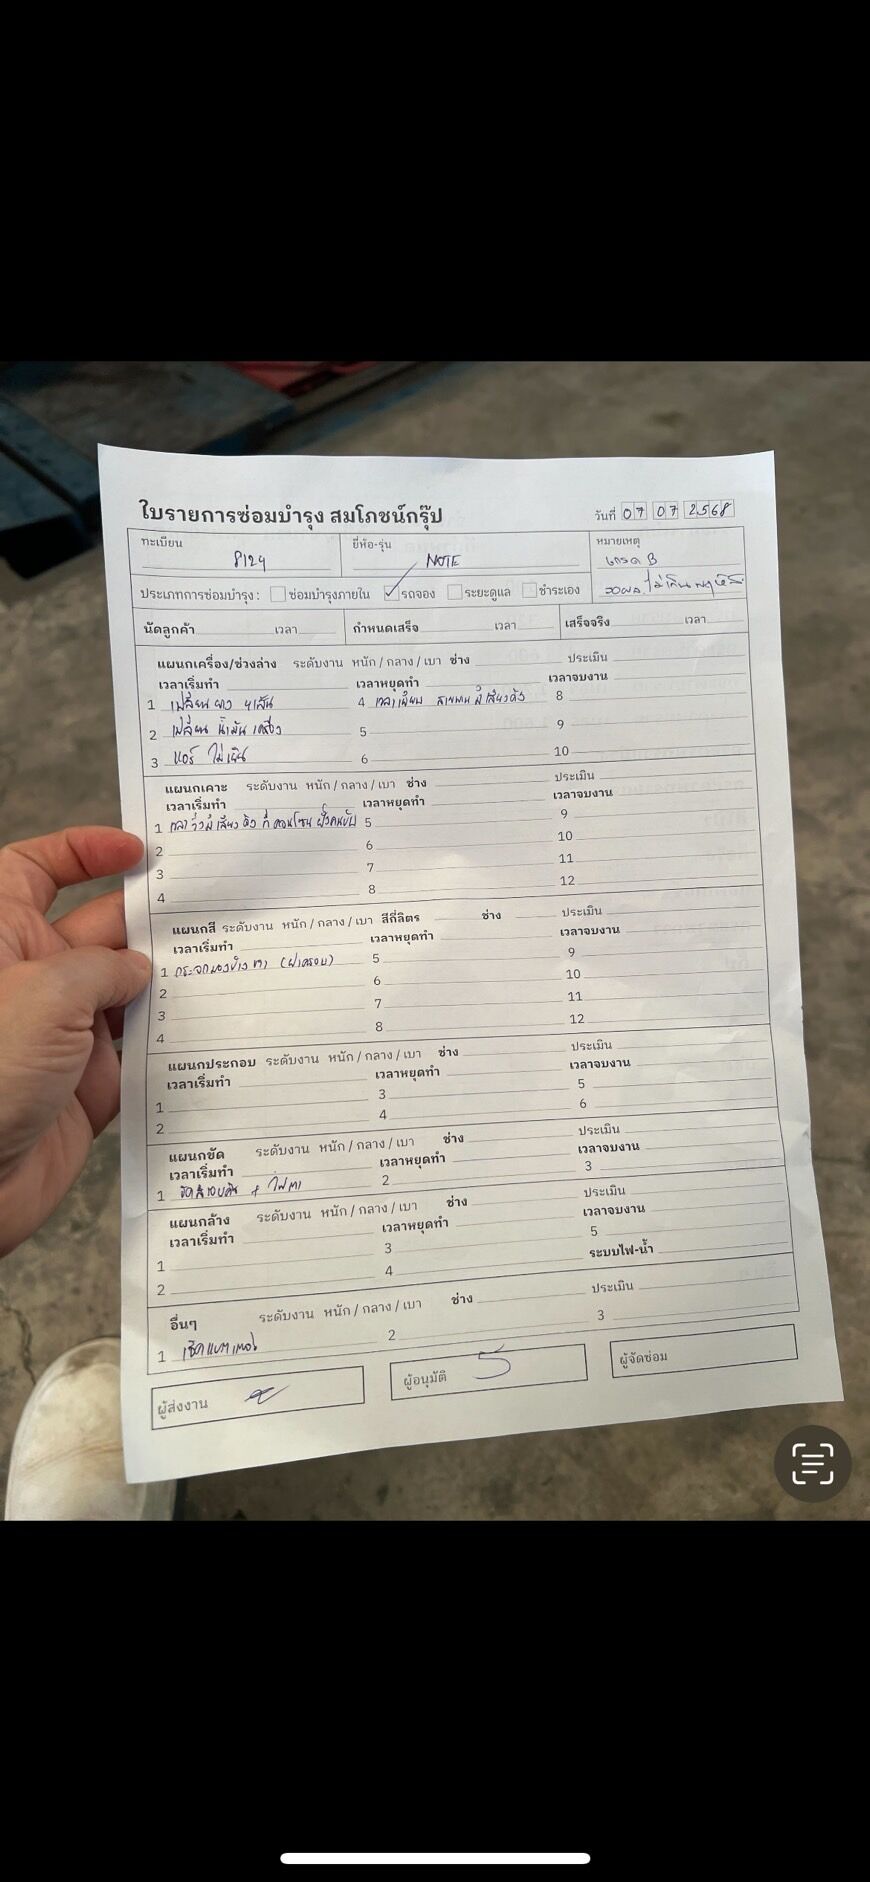 ใบรายการซ่อมบำรุง สมโภชน์กรุ๊ป
วันที่ 07 07 2568
ทะเบียน 8124
ยี่ห้อ-รุ่น NOTE
หมายเหตุ
เกรด B
ไม่เกิน
ประเภทการซ่อมบำรุง : ซ่อมบำรุงภายใน รถจอง ระยะดูแล ชำระเอง
นัดลูกค้า เวลา กำหนดเสร็จ เวลา เสร็จจริง เวลา
แผนกเครื่อง/ช่วงล่าง ระดับงาน หนัก / กลาง / เบา ช่าง ประเมิน
เวลาเริ่มทำ เวลาหยุดทำ เวลาจบงาน
1 เปลี่ยน ยาง 4เส้น 4 เวลาเหยียบ สายพาน มีเสียงดัง 8
2 เปลี่ยน น้ำมัน เครื่อง 5 9
3 แอร์ ไม่เย็น 6 10
แผนกเคาะ ระดับงาน หนัก / กลาง / เบา ช่าง ประเมิน
เวลาเริ่มทำ เวลาหยุดทำ เวลาจบงาน
1 เวลา วิ่งมี เสียง ดัง ที่ คอนโซน ฝั่งคนขับ 5 9
2 6 10
3 7 11
4 8 12
แผนกสี ระดับงาน หนัก / กลาง / เบา สีกี่ลิตร ช่าง ประเมิน
เวลาเริ่มทำ เวลาหยุดทำ เวลาจบงาน
1 กระจกมองข้าง ขวา (ฝาครอบ) 5 9
2 6 10
3 7 11
4 8 12
แผนกประกอบ ระดับงาน หนัก / กลาง / เบา ช่าง ประเมิน
เวลาเริ่มทำ เวลาหยุดทำ เวลาจบงาน
1 3 5
2 4 6
แผนกขัด ระดับงาน หนัก / กลาง / เบา ช่าง ประเมิน
เวลาเริ่มทำ เวลาหยุดทำ เวลาจบงาน
1 ขัดสีรอบคัน + ไฟตา 2 3
แผนกล้าง ระดับงาน หนัก / กลาง / เบา ช่าง ประเมิน
เวลาเริ่มทำ เวลาหยุดทำ เวลาจบงาน
1 3 5
2 4 ระบบไฟ-น้ำ
อื่นๆ ระดับงาน หนัก / กลาง / เบา ช่าง ประเมิน
1 เช็คแบตเตอรี่ 2 3
ผู้ส่งงาน ผู้อนุมัติ ผู้จัดซ่อม